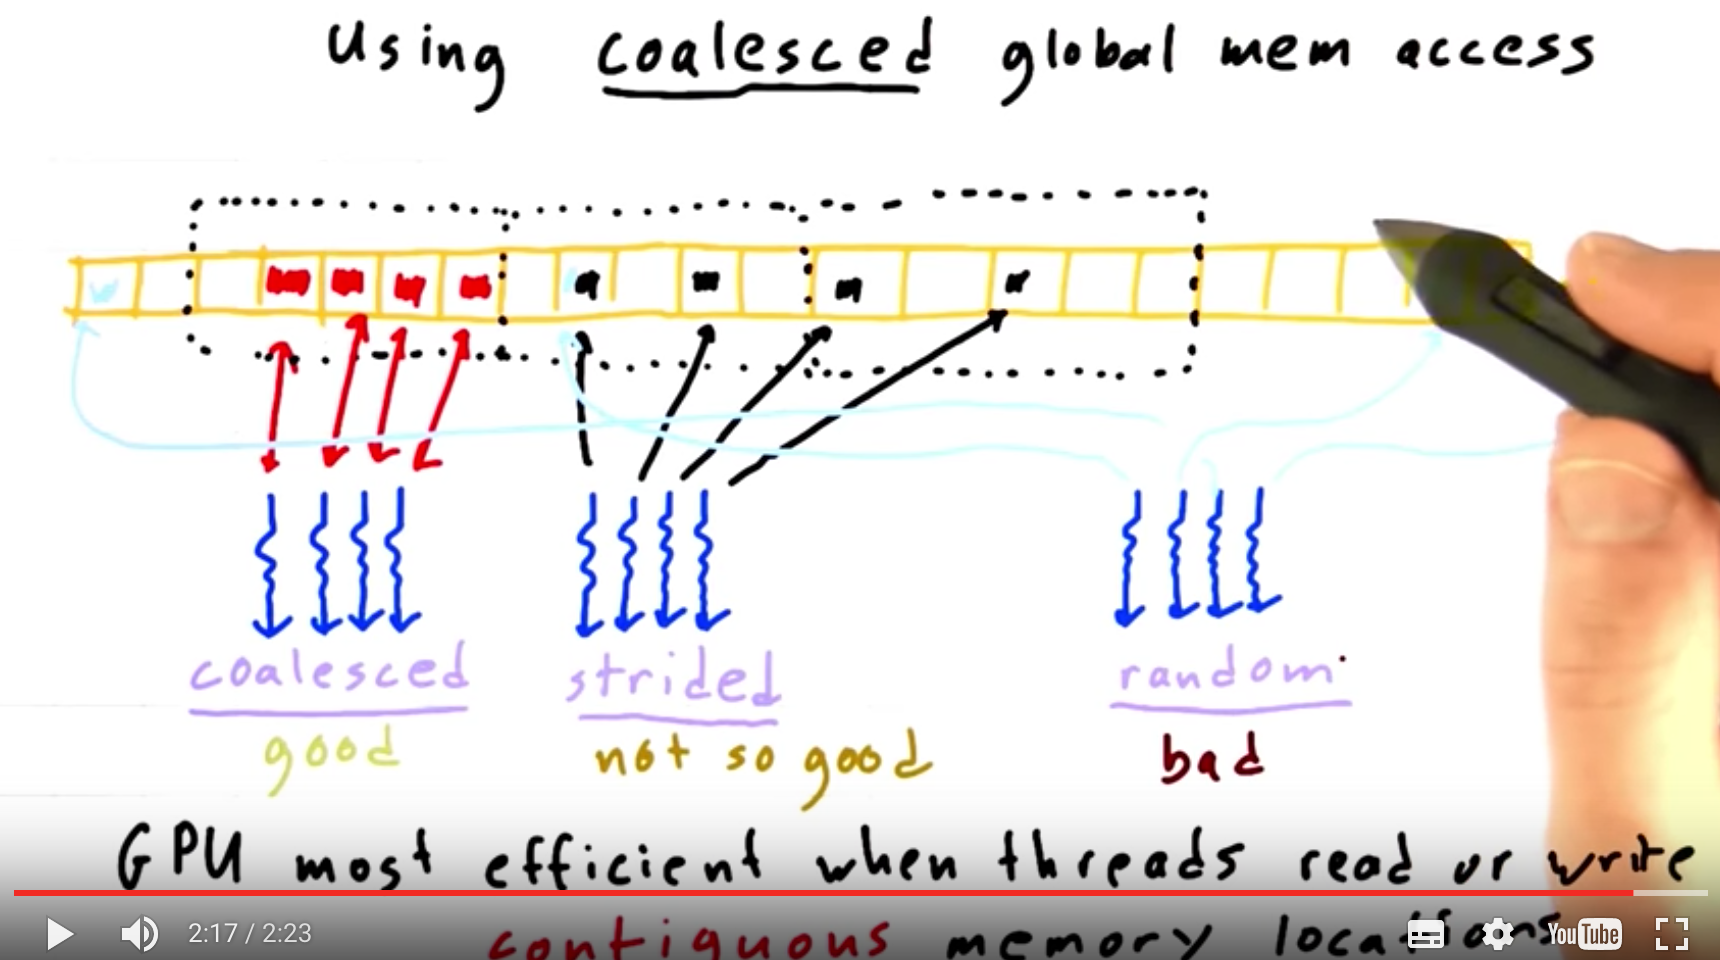 Using coalesced global mem access
coalesced strided random
good not so good bad
GPU most efficient when threads read or write
contiguous memory locations
2:17 / 2:23
YouTube